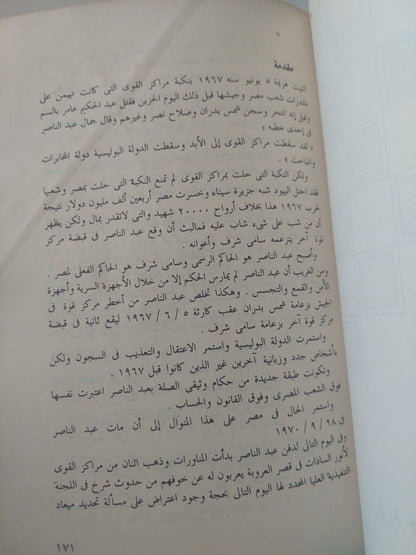 مقدمة
انتهت هزيمة ٥ يونيو سنه ١٩٦٧ بنكبة مراكز القوى التى كانت تهيمن على
مقدرات شعب مصر وجيشها قبل ذلك اليوم الحزين فقتل عبد الحكيم عامر بالسم
وقيل إنه انتحر وسجن شمس بدران وصلاح نصر وغيرهم وقال جمال عبد الناصر
فى إحدى خطبه :
« لقد سقطت مراكز القوى إلى الأبد وسقطت الدولة البوليسية دولة المخابرات
والمباحث » .
ولكن النكبة التى حلت بمراكز القوى لم تمنع النكبة التى حلت بمصر وشعبها
فقد احتل اليهود شبه جزيرة سيناء وخسرت مصر أربعين ألف مليون دولار نتيجة
لحرب ١٩٦٧ هذا بخلاف أرواح ٢٠٠٠٠ شهيد والتى لاتقدر بمال ولكن يظهر
أن من شب على شىء شاب عليه فمالبث أن وقع عبد الناصر فى قبضة مركز
قوة آخر يتزعمه سامى شرف وأعوانه .
وأصبح عبد الناصر هو الحاكم الرسمى وسامى شرف هو الحاكم الفعلى لمصر .
ومن الغريب أن عبد الناصر لم يمارس الحكم إلا من خلال الأجهزة السرية وأجهزة
الأمن والقمع والتجسس . وهكذا تخلص عبد الناصر من أخطر مركز قوة فى
الجيش بزعامة شمس بدران عقب كارثة ٥ / ٦ / ١٩٦٧ ليقع ثانية فى قبضة
مركز قوة آخر بزعامة سامى شرف .
واستمرت الدولة البوليسية واستمر الاعتقال والتعذيب فى السجون ولكن
بأشخاص جدد وزبانية آخرين غير الذين كانوا قبل ١٩٦٧ .
وتكونت طبقة جديدة من حكام وثيقى الصلة بعبد الناصر اعتبرت نفسها
فوق الشعب المصرى وفوق القانون والحساب .
واستمر الحال فى مصر على هذا المنوال إلى أن مات عبد الناصر
فى ٢٨ / ٩ / ١٩٧٠
وفى اليوم التالى لدفن عبد الناصر بدأت المناورات وذهب اثنان من مراكز القوى
لأنور السادات فى قصر العروبة يعربون له عن خوفهم من حدوث شرخ فى اللجنة
التنفيذية العليا المحدد لها اليوم التالى بحجة وجود اعتراض على مسألة تحديد ميعاد
١٧١